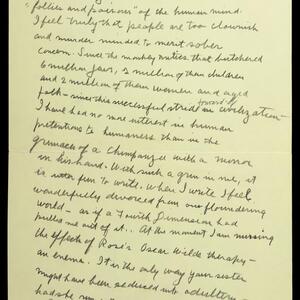 "follies and poisons" of the human mind.
I feel truly that people are too clownish
and murder minded to merit sober
concern. Since the monkey antics that butchered
6 million Jews, 2 million of them children
and 2 million of them women and aged
folk – since this successful stride toward civilization –
I have had no more interest in human
pretentions to humaness than in the
grimaces of a chimpanzee with a mirror
in his hand. With such a grin in me, it
is utter fun to write. When I write I feel
wonderfully divorced from our floundering
world – as if a Fourth Dimension had
pulled me out of it.. At the moment I am missing
the effects of Rose's Oscar Wilde therapy –
an enema. It is the only way your sister
might have been seduced into adultery –
had she